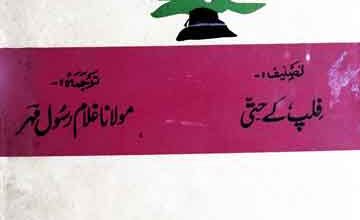 تصنیف :-
فلپ کے حتّی
ترجمہ :-
مولانا غلام رسول مہر